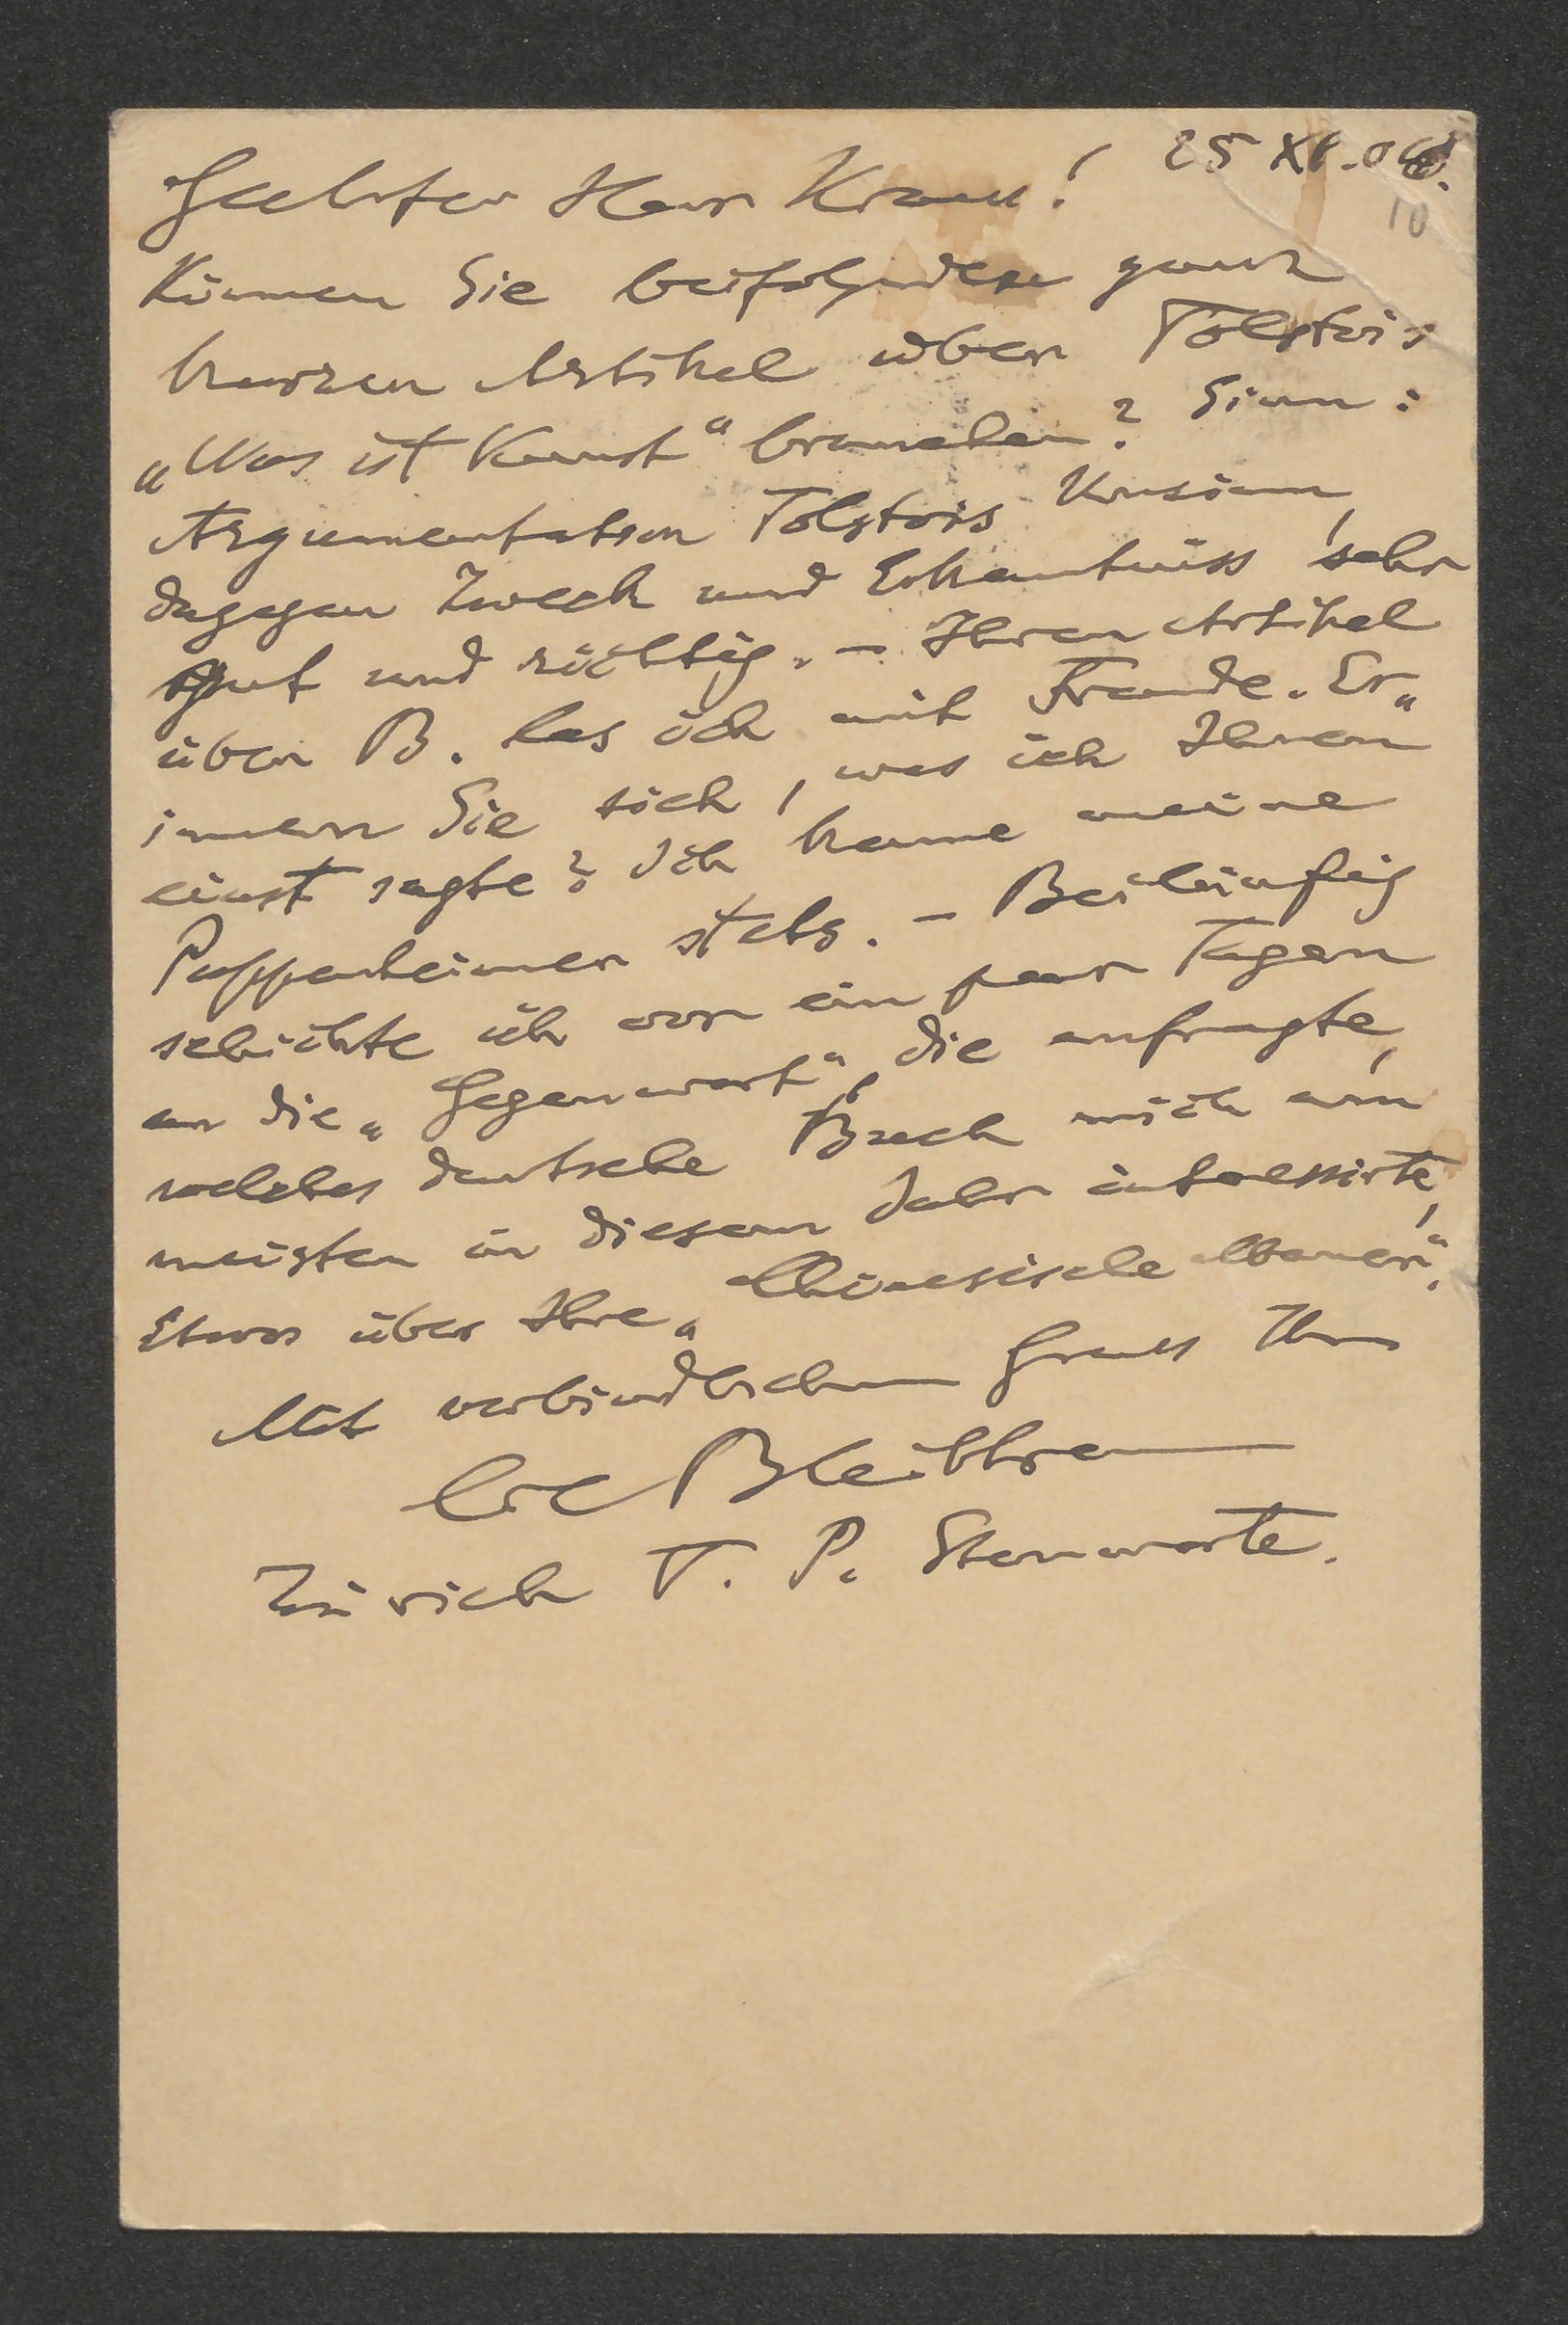 25 XI.
10
Geehrter Herr Kraus!
Können Sie beifolgenden ganz
kurzen Artikel über Tolstois
„Was ist Kunst“ brauchen? Sinn:
Argumentation Tolstois Unsinn,
dagegen Zweck und Erkenntniss sehr
gut und richtig. – Ihren Artikel
über B. las ich mit Freude. Er„
innern Sie sich, was ich Ihnen
einst sagte? Ich kenne meine
Pappenheimer stets. – Beiläufig
schickte ich vor ein paar Tagen
an die „Gegenwart“, die anfragte,
welches deutsche Buch mich am
meisten in diesem Jahr interessirte,
Etwas über Ihre „Chinesische Mauer“.
Mit verbindlichem Gruss Ihr
Carl Bleibtreu
Zürich V. P. Sternwarte.